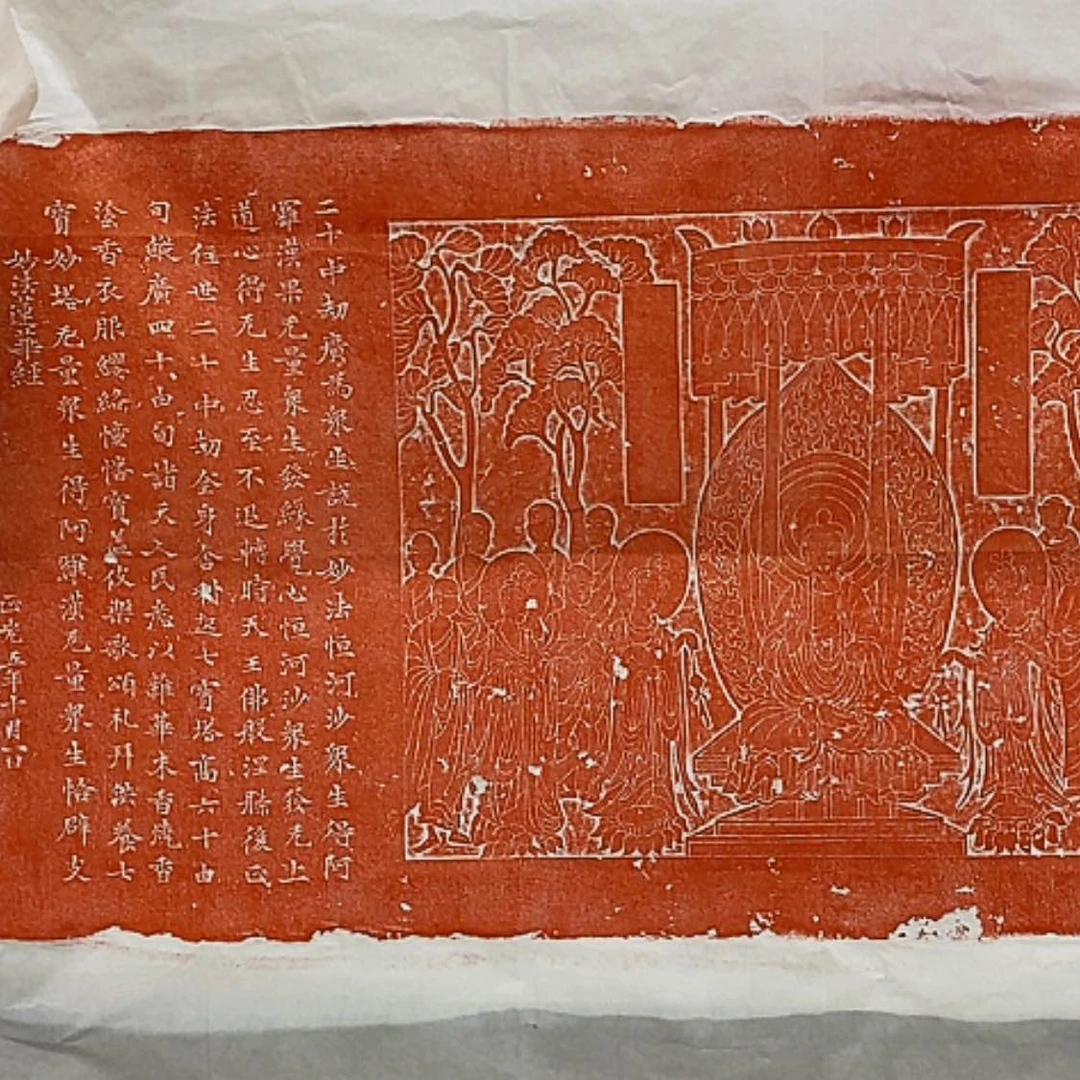 二十中劫廣爲衆生說於妙法恒河沙衆生得阿
羅漢果无量衆生發緣覺心恒河沙衆生發无上
道心得无生忍至不退轉時天王佛般涅槃後正
法住世二十中劫全身舍利起七寶塔高六十由
旬縱廣四十由旬諸天人民悉以雜華末香燒香
塗香衣服瓔珞幢幡寶蓋伎樂歌頌礼拜供養七
寶妙塔无量衆生得阿羅漢无量衆生悟辟支
妙法蓮華經
正光五年十月